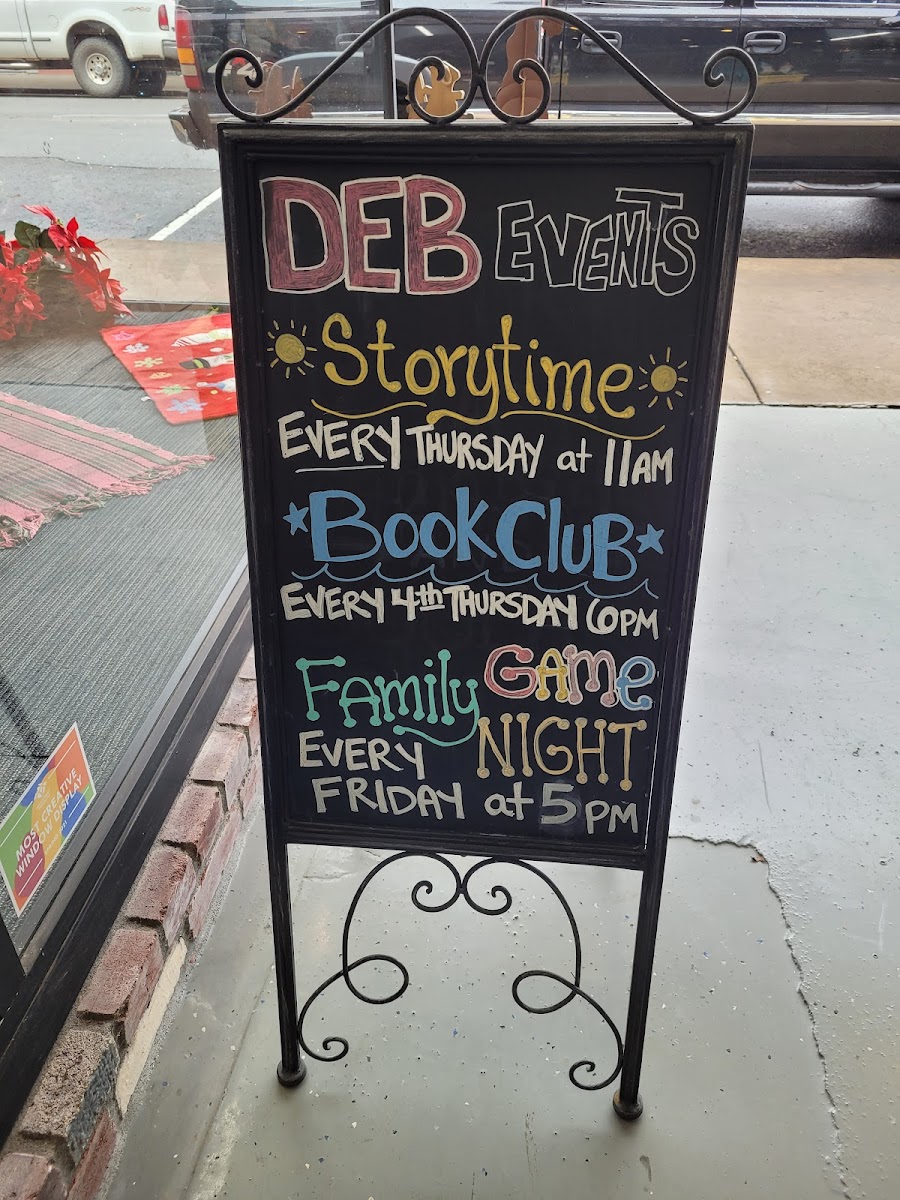 DEB EVENTS
Storytime
EVERY THURSDAY at 11AM
Book Club
EVERY 4th THURSDAY 6PM
Family GAMe
NIGHT
EVERY
FRIDAY at 5PM
MOST CREATIVE
WINDOW DISPLAY